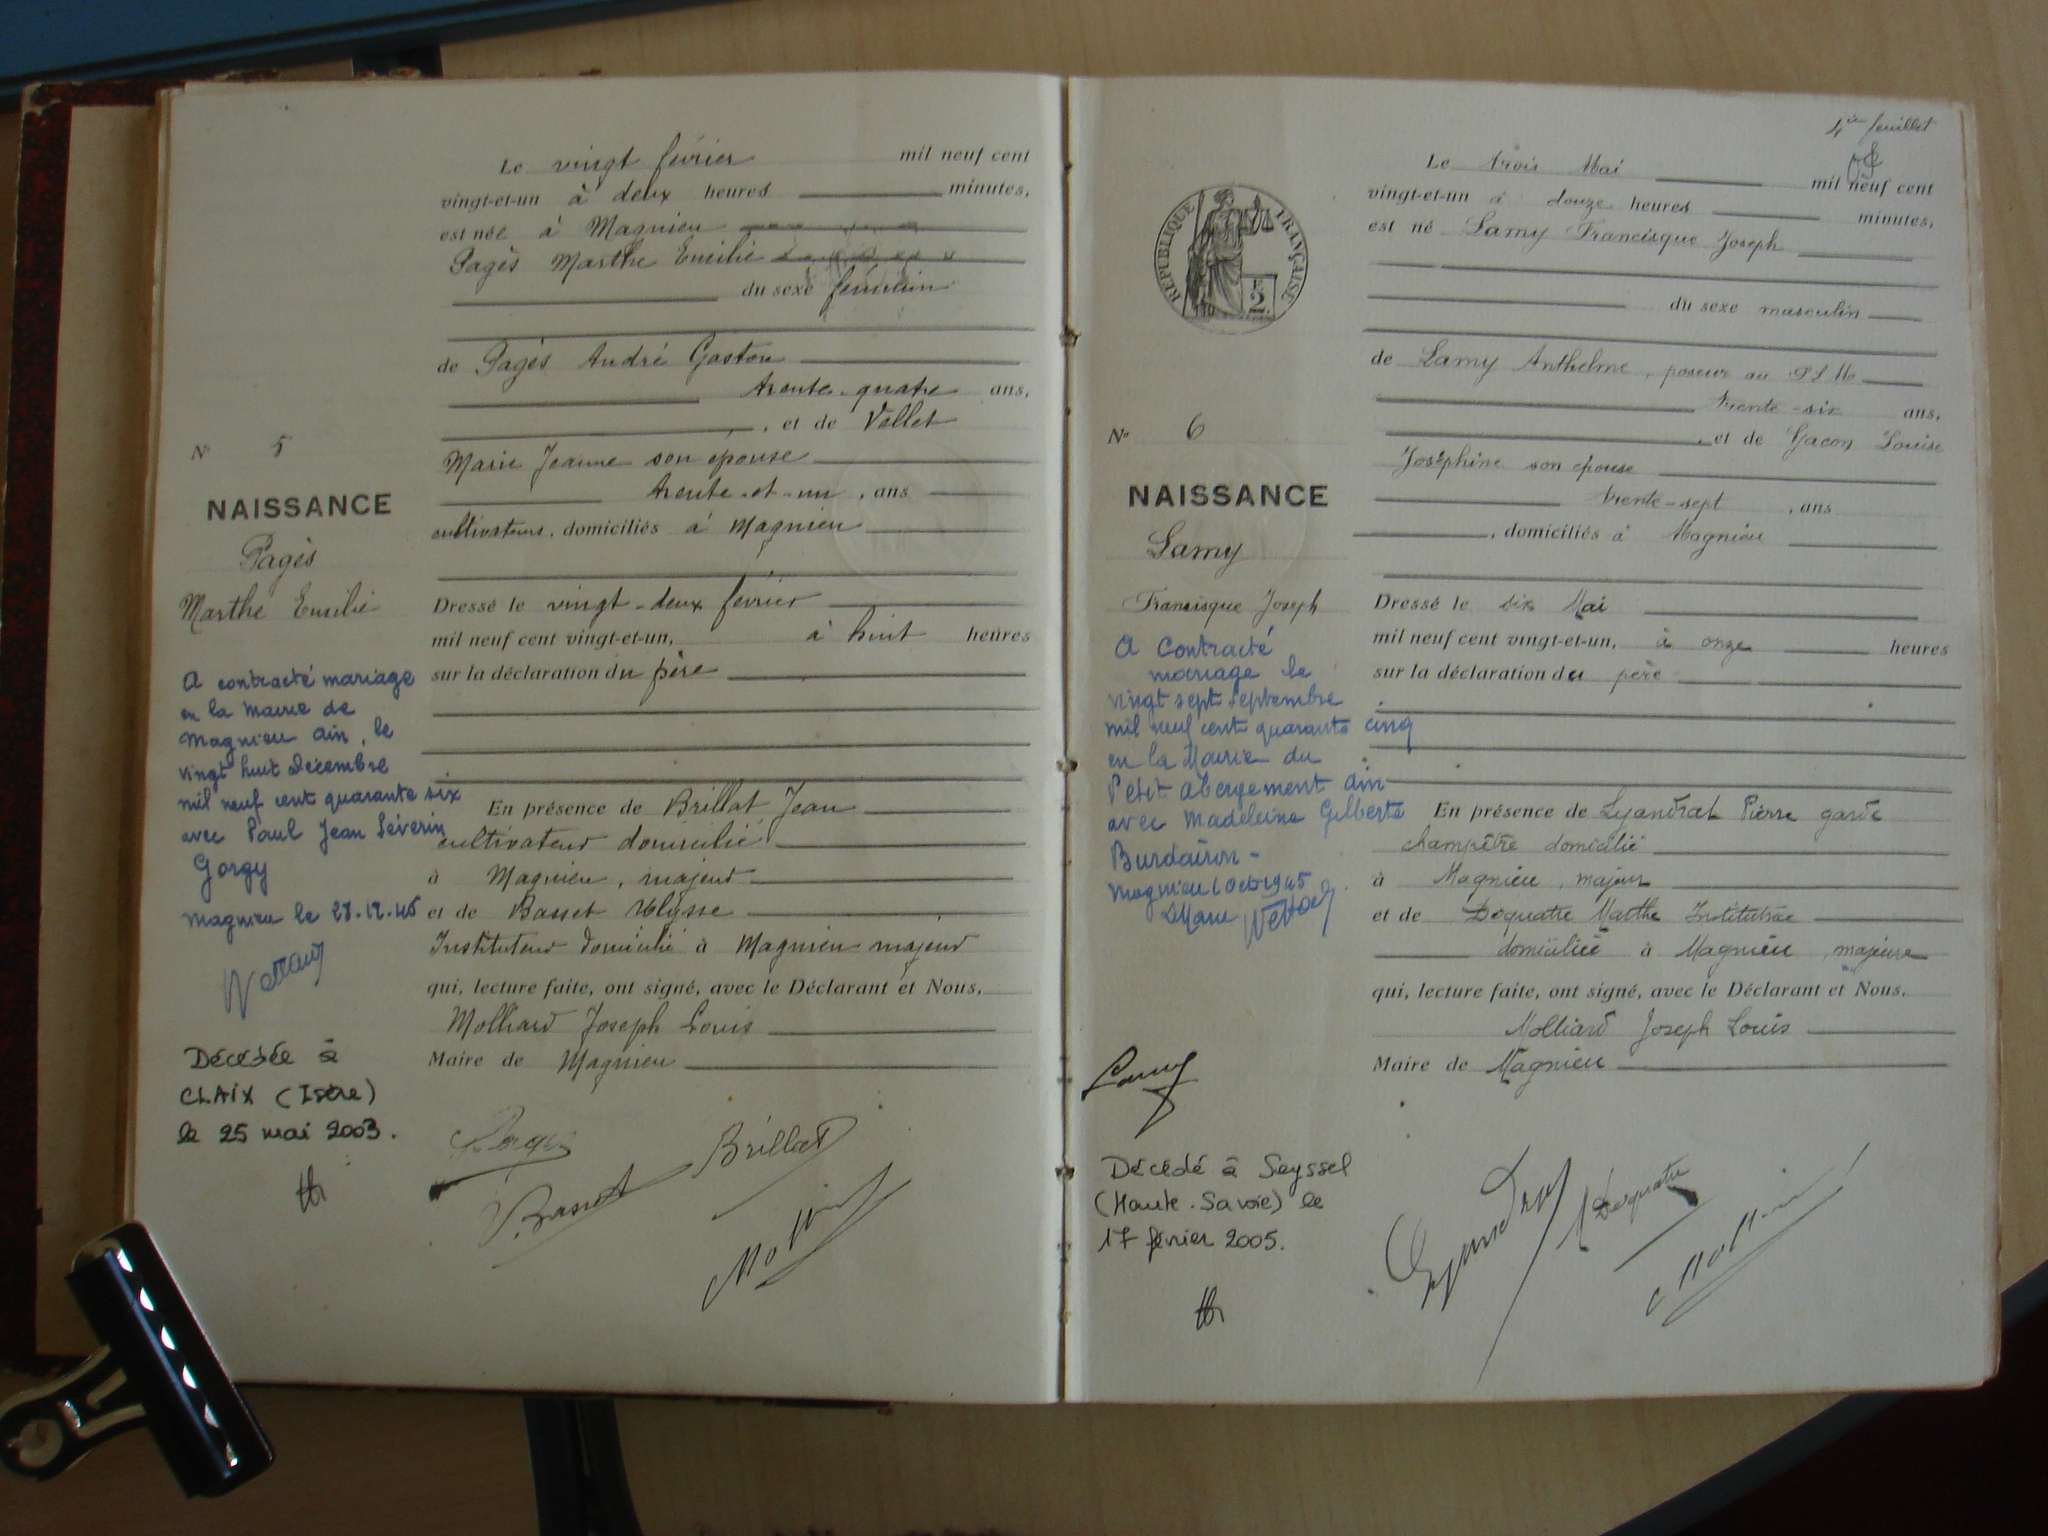 Le vingt février mil neuf cent
vingt-et-un à deux heures minutes,
est née à Magnieu
Pagès Marthe Emilie
du sexe féminin
de Pagès André Gaston
trente-quatre ans,
, et de Vallet
N° 5
Marie Jeanne son épouse
trente-et-un, ans
NAISSANCE
cultivateurs, domiciliés à Magnieu
Pagès
Marthe Emilie
Dressé le vingt-deux février
mil neuf cent vingt-et-un, à huit heures
sur la déclaration du père
A contracté mariage
en la Mairie de
Magnieu Ain, le
vingt huit Décembre
mil neuf cent quarante six
avec Paul Jean Séverin
Gorgy
Magnieu le 28.12.46
En présence de Brillat Jean
cultivateur domicilié
à Magnieu, majeur
et de Basset Ulysse
Instituteur domicilié à Magnieu majeur
qui, lecture faite, ont signé, avec le Déclarant et Nous,
Molliard Joseph Louis
Maire de Magnieu
Décédée à
CLAIX (Isère)
le 25 mai 2003.
Brillat
Basset
4e feuillet
Le trois Mai mil neuf cent
vingt-et-un à douze heures minutes,
est né Lamy Francisque Joseph
RÉPUBLIQUE FRANÇAISE
2
du sexe masculin
de Lamy Anthelme, poseur au P L M
trente-six ans,
, et de Gacon Louise
N° 6
Joséphine son épouse
trente-sept, ans
NAISSANCE
, domiciliés à Magnieu
Lamy
Francisque Joseph
Dressé le six Mai
mil neuf cent vingt-et-un, à onze heures
sur la déclaration du père
A Contracté
mariage le
vingt sept Septembre
mil neuf cent quarante cinq
en la Mairie du
Petit Abergement Ain
avec Madeleine Gilberte
Burdairon -
Magnieu 1 Oct 1945
Le Maire
En présence de Lyandrat Pierre garde
champêtre domicilié
à Magnieu, majeur
et de Dequatre Marthe Institutrice
domiciliée à Magnieu, majeure
qui, lecture faite, ont signé, avec le Déclarant et Nous.
Molliard Joseph Louis
Maire de Magnieu
Lamy
Décédé à Seyssel
(Haute-Savoie) le
17 février 2005.
M Dequatre